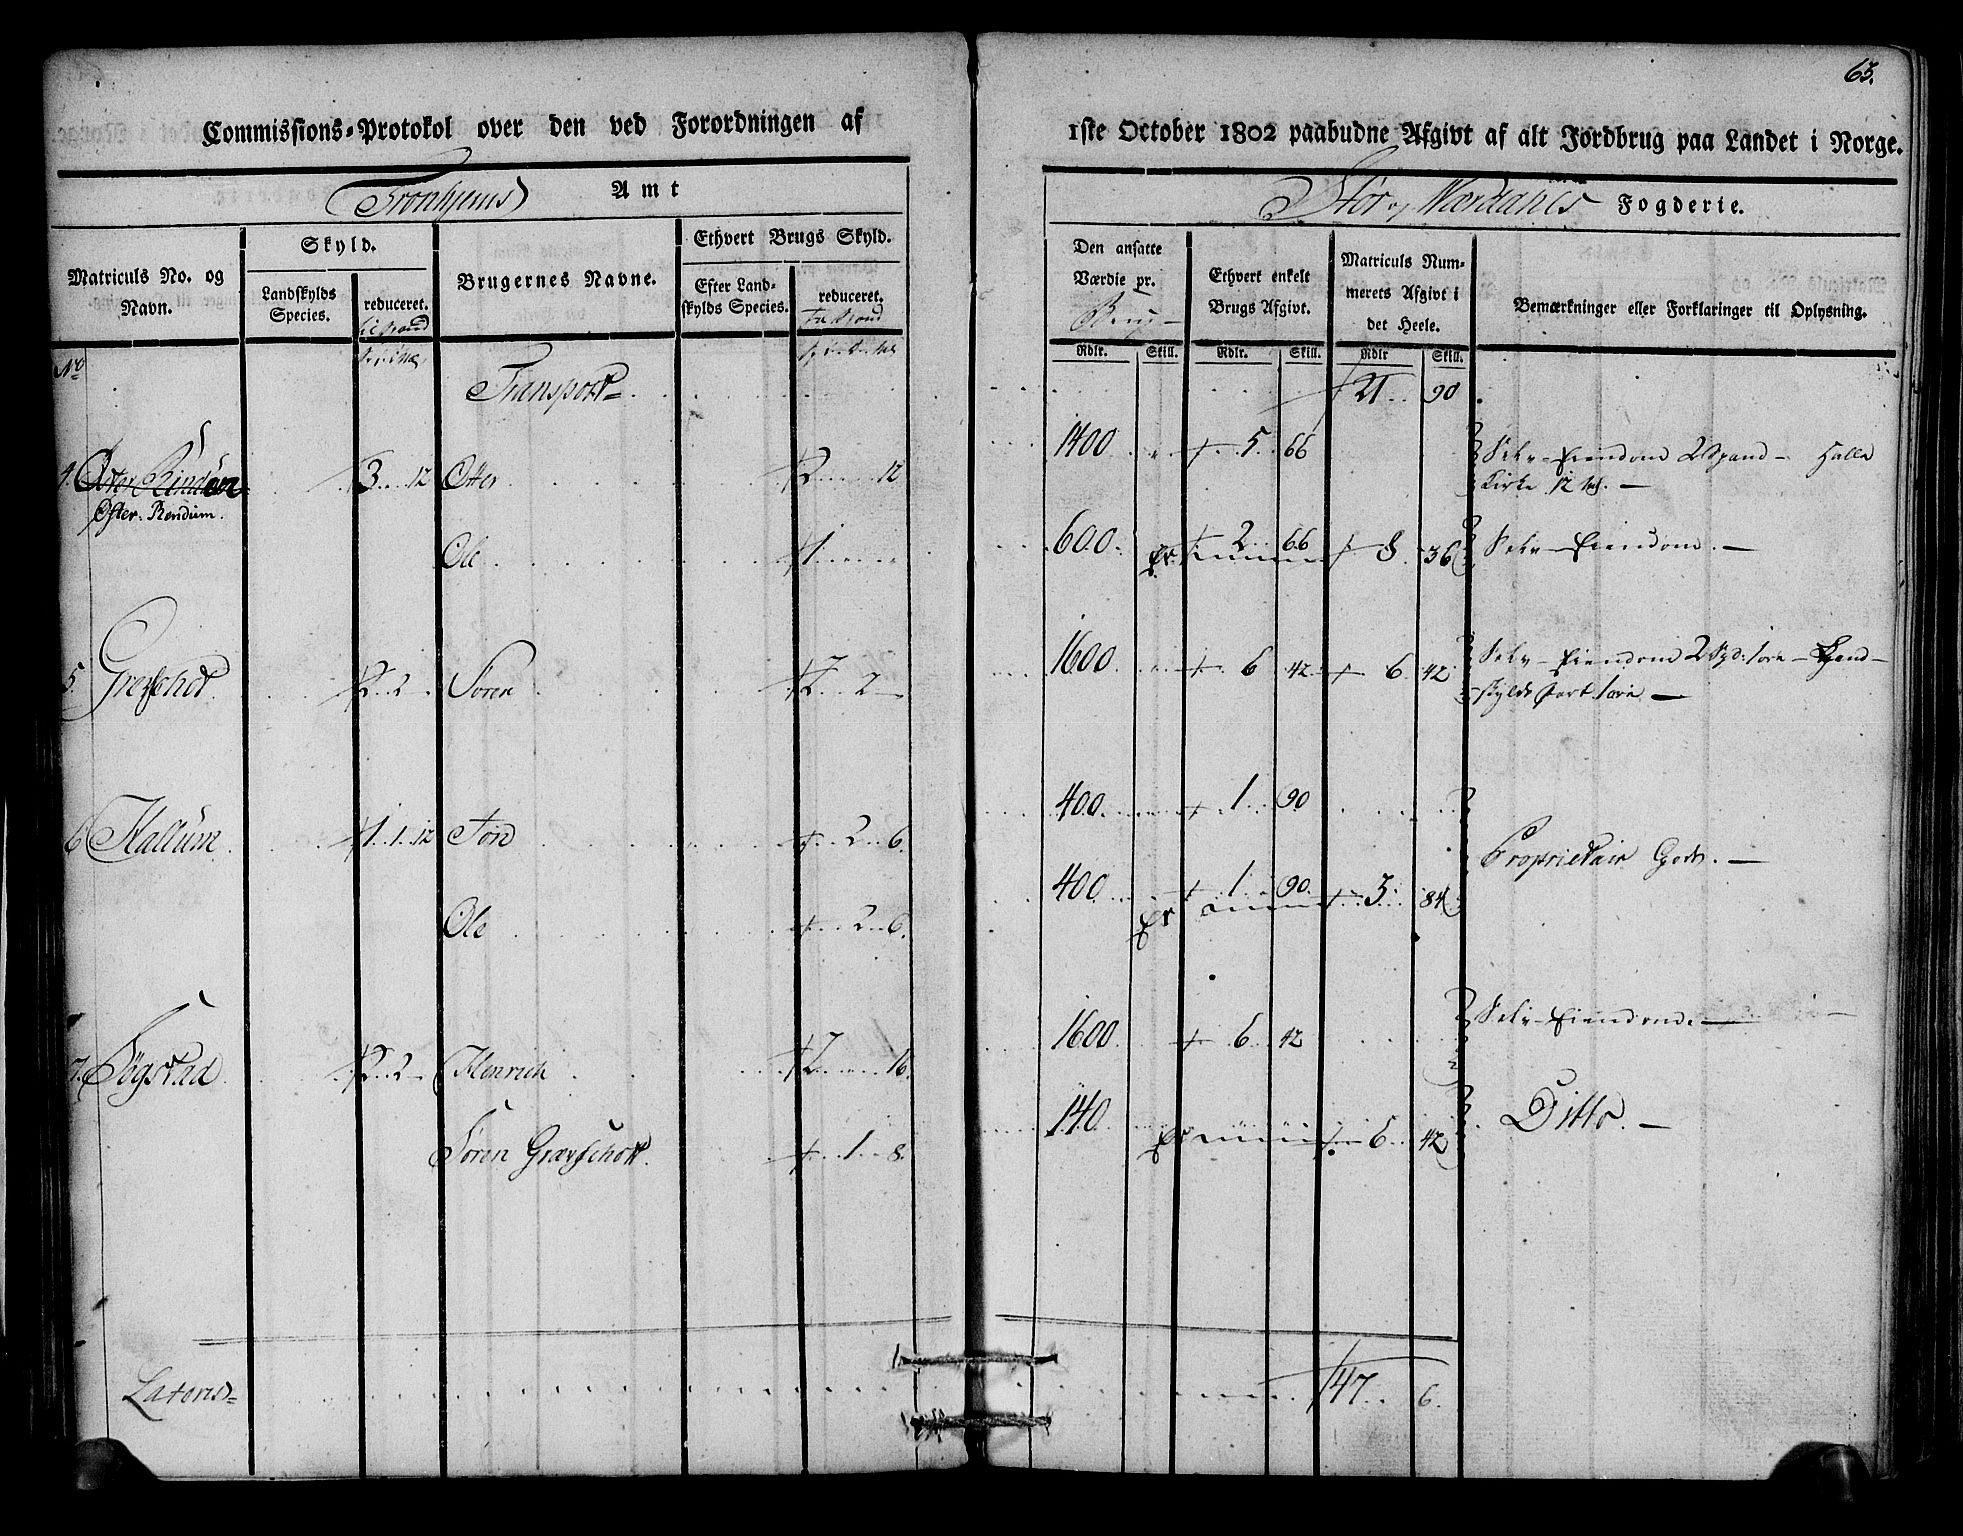 65.
Commissions-Protokol over den ved Forordningen af 1ste October 1802 paabudne Afgivt af alt Jordbrug paa Landet i Norge.
Tronhjems Amt
Stør og Værdahls Fogderie.
Matriculs No. og Navn.
Skyld.
Landskylds Species.
reduceret.
Brugernes Navne.
Ethvert Brugs Skyld.
Efter Landskylds Species.
reduceret.
Den ansatte Værdie pr. Brug
Ethvert enkelt Brugs Afgivt.
Matriculs Nummerets Afgivt i det Heele.
Bemærkninger eller Forklaringer til Oplysning.
Rdlr. Skill. Rdlr. Skill. Rdlr Skill.
No
Transport 21 90
4. Øster Rindum 3 12 Otter 2 12 1400 5 66 Selv-Eiendom 2 Spand - Halle
Øster. Rendum. Kirke 12 mk.
Ole 1 600 2 66 8 36 Selv-Eiendom.
5. Grefschot 2 2 Søren 2 2 1600 6 42 6 42 Selv-Eiendom 2 Spd: 1 øre - Land-
skyld 1 øre
6 Hallum 1 1 12 Tore 2 6 400 1 90
Proprietair Gods.
Ole 2 6 400 1 90 3 84
7. Søgstad 2 2 Henrich 2 16 1600 6 42 Selv-Eiendom
Søren Grævschott 1 8 140 6 42 Ditto.
Lateris 47 6.